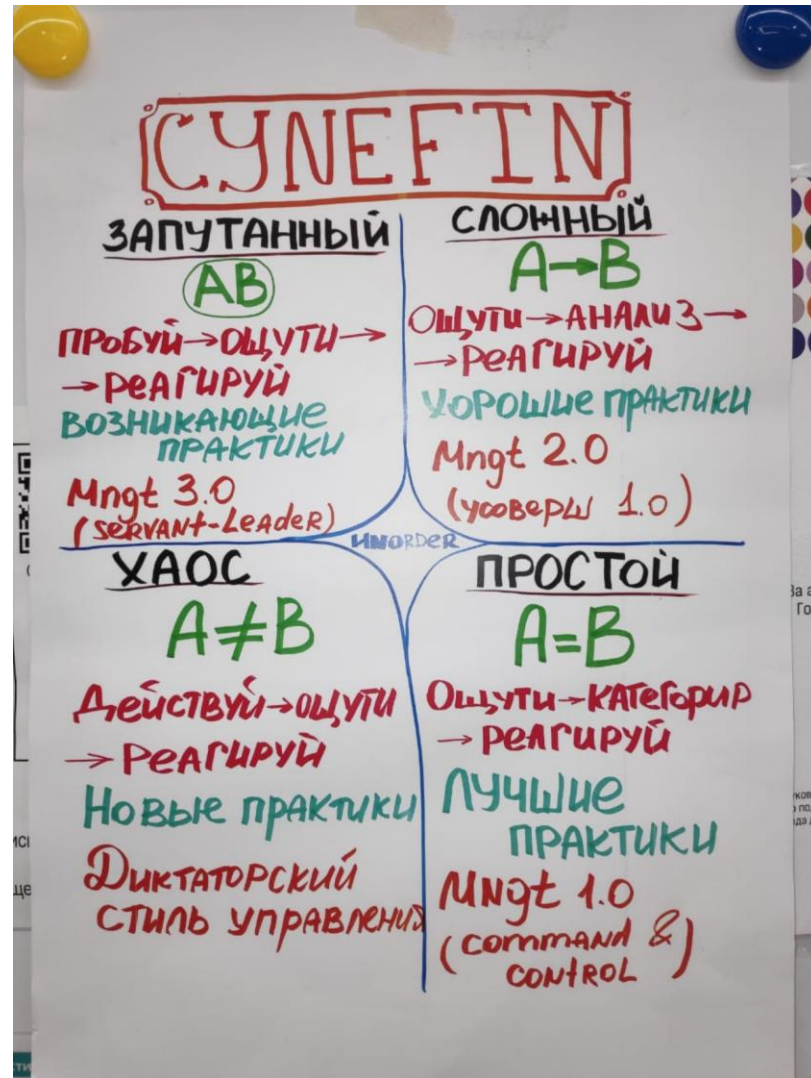 CYNEFIN
ЗАПУТАННЫЙ
AB
ПРОБУЙ→ОЩУТИ→
→РЕАГИРУЙ
ВОЗНИКАЮЩИЕ
ПРАКТИКИ
Mngt 3.0
(SERVANT-LEADER)
СЛОЖНЫЙ
A→B
ОЩУТИ→АНАЛИЗ→
→РЕАГИРУЙ
ХОРОШИЕ ПРАКТИКИ
Mngt 2.0
(усоверш 1.0)
ХАОС
A≠B
Действуй→ощути
→РЕАГИРУЙ
Новые практики
Диктаторский
стиль управления
ПРОСТОЙ
A=B
Ощути→КАТЕГОРИР
→РЕАГИРУЙ
ЛУЧШИЕ
ПРАКТИКИ
MNgt 1.0
(COMMAND &
CONTROL)